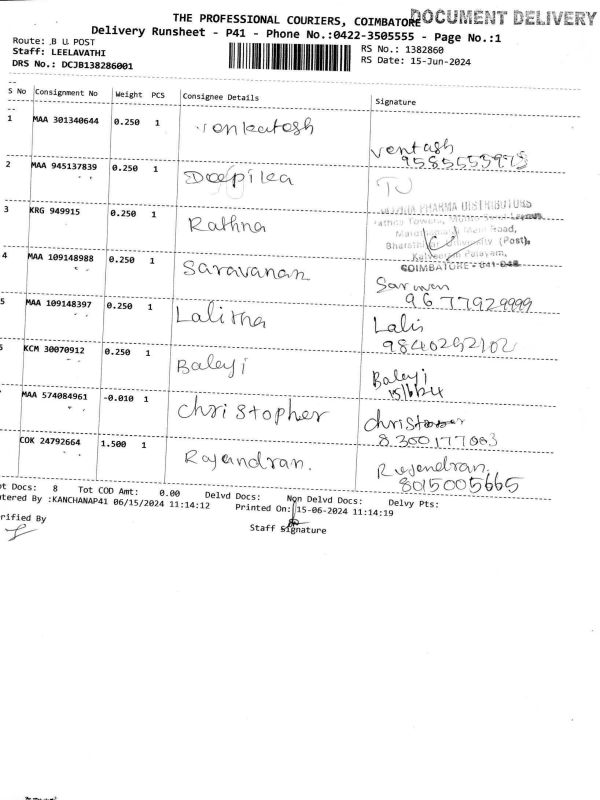 THE PROFESSIONAL COURIERS, COIMBATORE
DOCUMENT DELIVERY
Delivery Runsheet - P41 - Phone No.:0422-3505555 - Page No.:1
Route: .B U POST
Staff: LEELAVATHI
DRS No.: DCJB138286001
RS No.: 1382860
RS Date: 15-Jun-2024
S No Consignment No Weight PCS Consignee Details Signature
1 MAA 301340644 0.250 1 Venkatesh
Ventash
2 MAA 945137839 0.250 1 Deepika
3 KRG 949915 0.250 1 Rathna
PHARMA DISTRIBUTORS
Road,
University (Post),
COIMBATORE - 641 046
4 MAA 109148988 0.250 1 Saravanan
9677929999
5 MAA 109148397 0.250 1 Lalitha
Lalis
9840252102
KCM 30070912 0.250 1 Balaji
Balaji
15/6/24
MAA 574084961 -0.010 1 Christopher
8300177003
COK 24792664 1.500 1 Rajendran.
Rajendran.
8015005665
ot Docs: 8 Tot COD Amt: 0.00 Delvd Docs: Non Delvd Docs: Delvy Pts:
ntered By :KANCHANAP41 06/15/2024 11:14:12 Printed On: 15-06-2024 11:14:19
rified By
Staff Signature